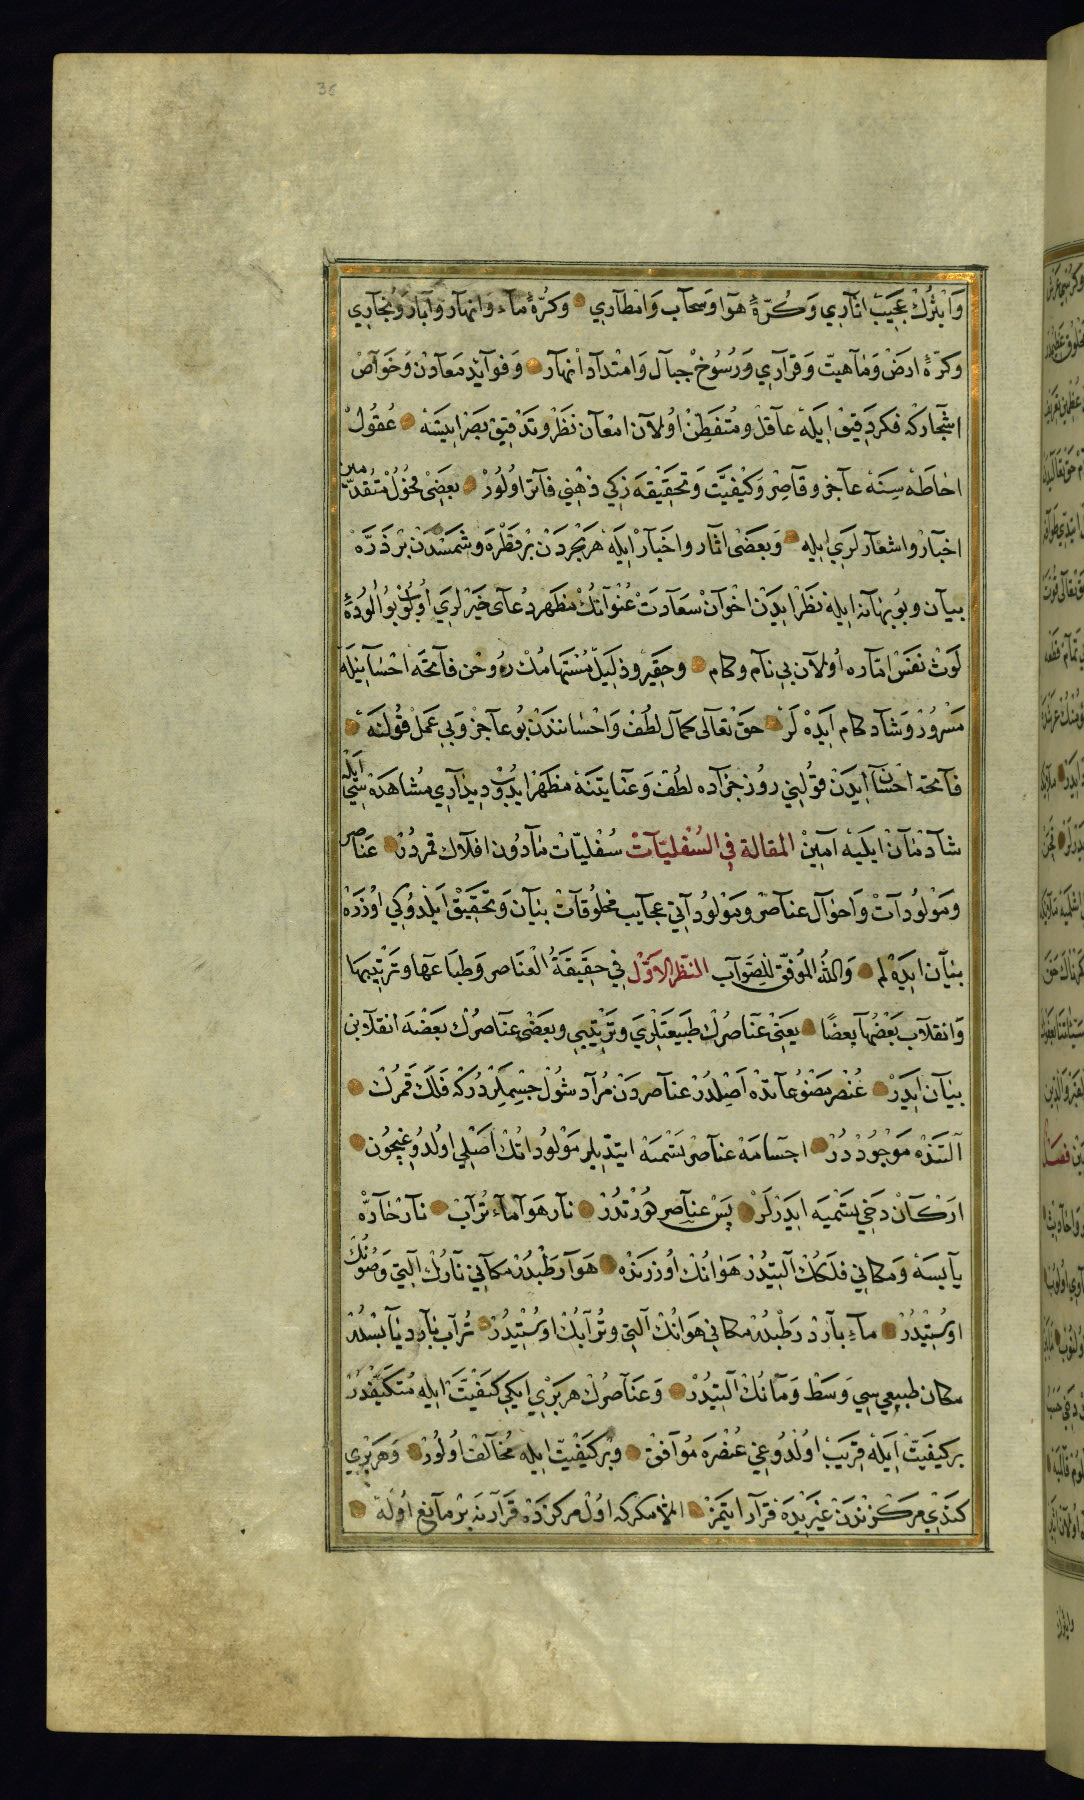 36
وَاثْرُكْ عَجَيبْ اثآرِي وَكُرَّهٔ هوَا وَسَحآب وَامْطآرِي وَكُرّهٔ مآء وانهآر وَآبار وَبُخآرِي
وكرّهٔ ارضْ وَمٰاهيتّ وَقرارِي وَرُسُوخْ جبآل وَامْتدآد انهآر وَفوآئِد مَعآدنْ وَخوَآصْ
اشْجآركه فكر دَقيق ايَله عآقل ومُتفَطِنْ اوُلآن امْعآن نَظرْ وتدَقِيقْ بصَر ايتسَه عُقوُلْ
احَاطَه سِنَه عآجز وقآصِرْ وَكَيْفيَّت وَتحَقيقه زَكي ذهِني فآتر اوُلوُرْ بعَضِي فحُولُ متُقدّمين
اخبآر واشعآر لرَي ايله وَبعَضى اثآر واخبَآر ايلَه هَر بحَردَنْ برْ قطره وشَمسْدن برْ ذرّه
بيآن وبوُ بهآنه ايله نَظر ايدَنْ اخْوآنْ سَعآدتْ عُنْوآنكْ مظهر دُعآى خَيرْ لرَي اوُلوُب بُو الوُدهٔ
لَوثِ نفسْ امّاره اوُلآن بي نآم وكام وحَقير وذليَل مُستهآمكْ روُحْن فآتحَه احْسَانيلَه
مَسْروُرْ وَشآد كام ايَده لَرْ حَق تعآلى كمآل لطُفْ وَاحْسَانندَن بُو عآجز وَبي عَمَلْ قوُلنَه
فآتحه احْسآن ايدَنْ قوُلِيني روُز جزآده لطُف وَعنَايتنَه مَظهَرْ ايدوُب دِيدَآرِي مُشاهَدَه سِي ايله
شآدْمآن ايلَيه آمِينْ المقالة فِي السُفليّآت سُفليّات مٰادوُن افلاك قمردُر عنَاصر
ومَوْلوُدآتْ وَاحْوآل عنآصر ومَوْلوُدآتِي عجآيب مخلوُقآتْ بيَآن وَتحَقيقْ ايلدوُكي اوُزرَه
بيَآن ايدَه لم وَاللهُ المُوفّق للِصّوَآب النّظر الاَوَّل فِي حَقِيقَةُ الْعنَاصر وَطبَاعهَا وتَرْتِيبهَا
وَانقلاب بَعْضُهآ بعضًا يعَنِي عنَاصرُك طبيعَتلرِي وتَرْتِيبِي وبعَضى عنآصرُك بعَضَه انقلابن
بيَآن ايَدر عُنْصر مَصْنوُعآتدَه اَصِلدُرْ عنآصردَنْ مُرآد شوُلْ جِسِملَردُركه فلَك قمرُكْ
آلتندَه مَوْجُودْ دُرْ اجسآمَه عنآصر تسَميَه ايتدِيلر مَولوُداتكْ اَصَلِي اولدوُغِيچون
ارْكآنْ دَخِي تسَميَه ايدرلَرْ پَسْ عنآصر دوُرتدُرْ نآر هَوآ مآء تُرآبْ نآر حآرّه
يآبسَه وَمكانِي فلَكُك آلتِيدُرْ هَوَانُكْ اوُزَرندَه هَوآ رَطْبدُرْ مكآنِي نآرُكْ آلتِي وَصُونُكْ
اوسُتِيْدُرْ مآء بآرد رَطْبدُرْ مكانِي هَوَانُكْ آلتِي وتُرآبُكْ اوسُتِيدُرْ تُرآب بآرد يآبسْدُرْ
مكان طبيعِي سِي وَسَط وَمَآنُكْ آلتِيدُرْ وَعنَآصرُكْ هَر برِي ايكي كيَفيتَ ايله مُتكَيّفْدُرْ
بر كيفيَتْ ايلَه قرِيبْ اوُلدوُغِي عُنْصرَه مُوآفِقْ وبرْ كيَفيّت ايله مُخآلفْ اوُلوُرْ وَهَر برِي
كندِي مركَزندَنْ غيَريدَه قرآر ايتمَزْ الّا مكركه اوُل مركزدَه قرآرنه برْ مآنع اوُلَه